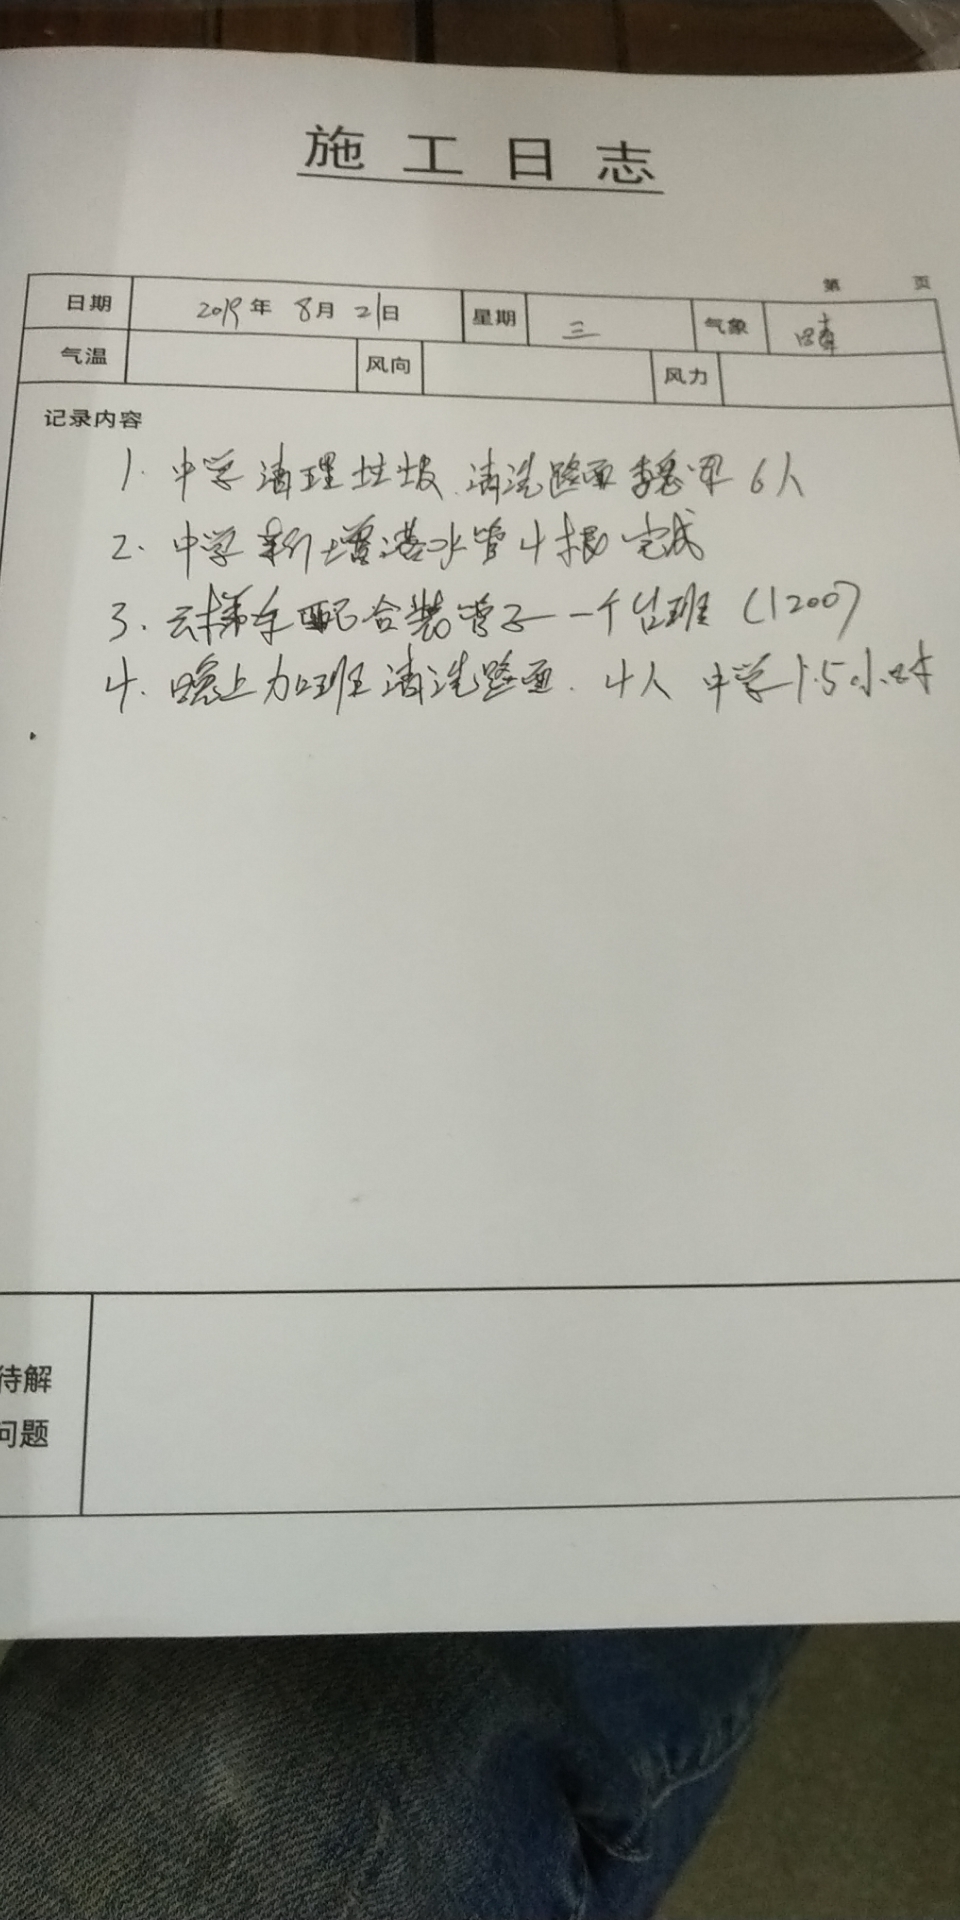 施工日志
第 页
日期 2019年 8月 21日 星期 三 气象 晴
气温 风向 风力
记录内容
1. 中学清理垃圾.清洗路面 6人
2. 中学新增落水管4根完成
3. 车配合装管子一个台班 (1200)
4. 晚上加班清洗路面. 4人 中学1.5小时
待解
问题